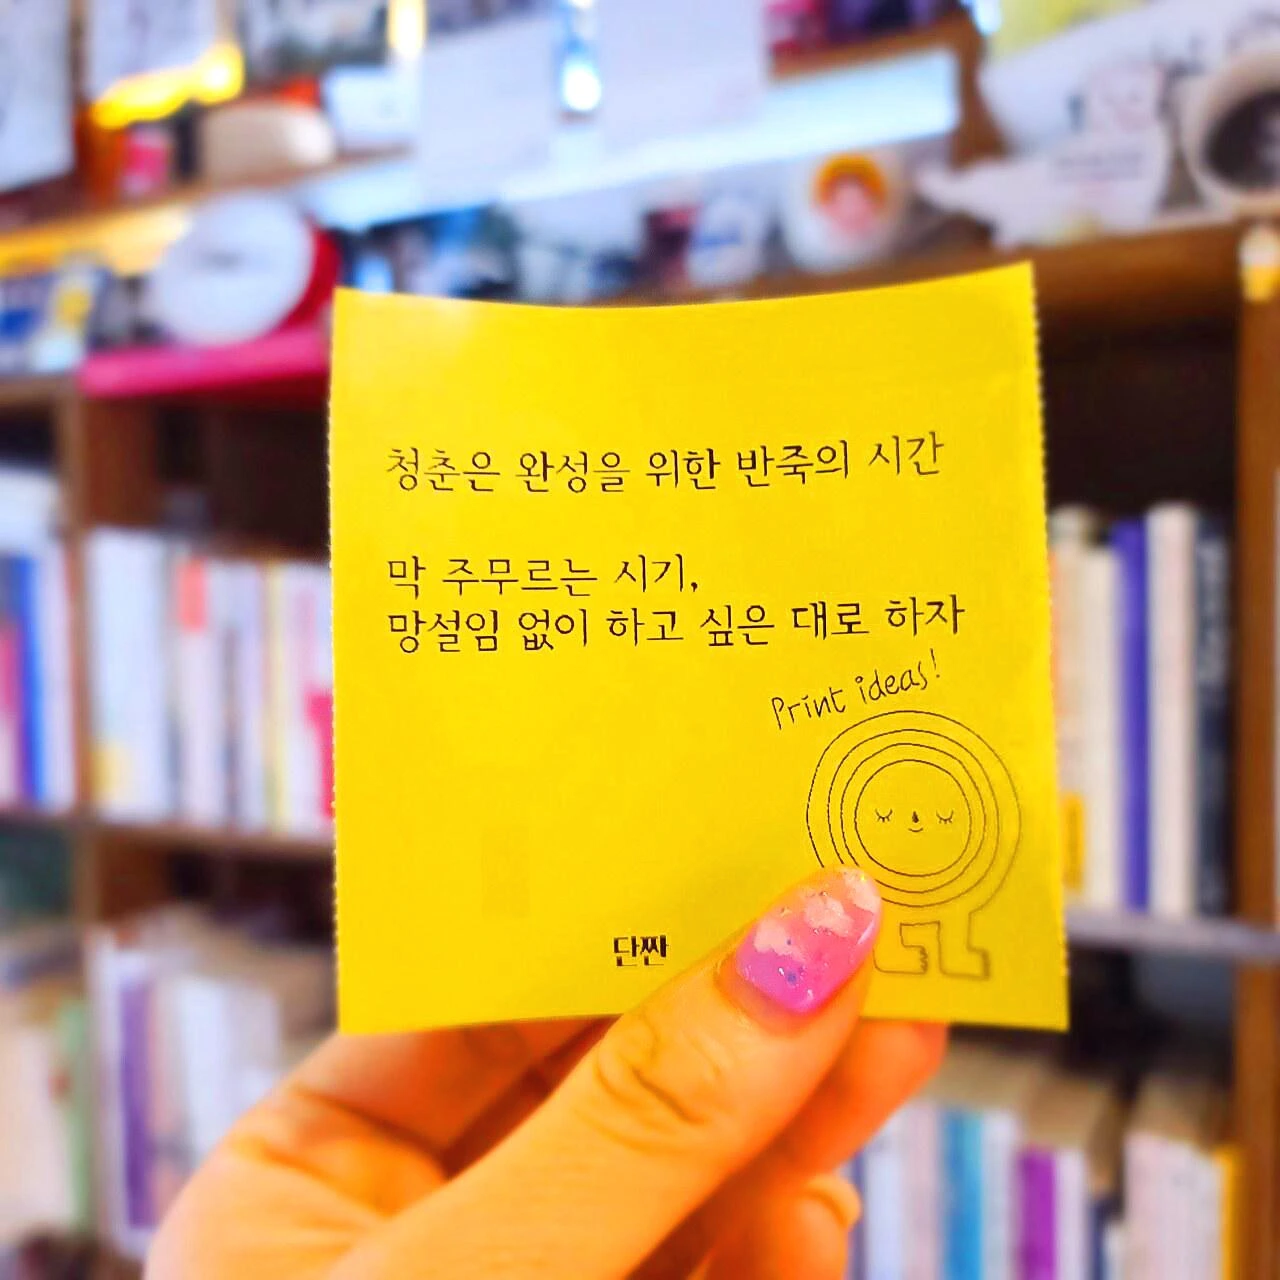 청춘은 완성을 위한 반죽의 시간
막 주무르는 시기,
망설임 없이 하고 싶은 대로 하자
Print ideas!
단짠